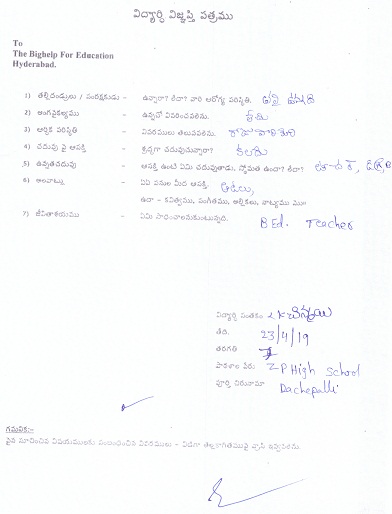 విద్యార్థి విజ్ఞప్తి పత్రము
To
The Bighelp For Education
Hyderabad.
1) తల్లిదండ్రులు / సంరక్షకుడు - ఉన్నారా? లేదా? వారి ఆరోగ్య పరిస్థితి.
2) అంగవైకల్యము - ఉన్నచో వివరించవలెను.
3) ఆర్థిక పరిస్థితి - వివరములు తెలుపవలెను.
4) చదువు పై ఆసక్తి - శ్రద్ధగా చదువుచున్నారా?
5) ఉన్నతచదువు - ఆసక్తి ఉంటే ఏమి చదువుతాడు. స్తోమత ఉందా? లేదా?
6) అలవాట్లు - ఏఏ పనుల మీద ఆసక్తి. ఆటలు,
ఉదా - కవిత్వము, సంగీతము, అల్లికలు, నాట్యము
7) జీవితాశయము - ఏమి సాధించాలనుకుంటున్నది. BEd. Teacher
విద్యార్థి సంతకం
తేది. 23/4/19
తరగతి
పాఠశాల పేరు ZP High School
పూర్తి చిరునామా Dachepalli
గమనిక:-
పైన సూచించిన విషయములకు సంబంధించిన వివరములు - విడిగా తెల్లకాగితముపై వ్రాసి ఇవ్వవలెను.